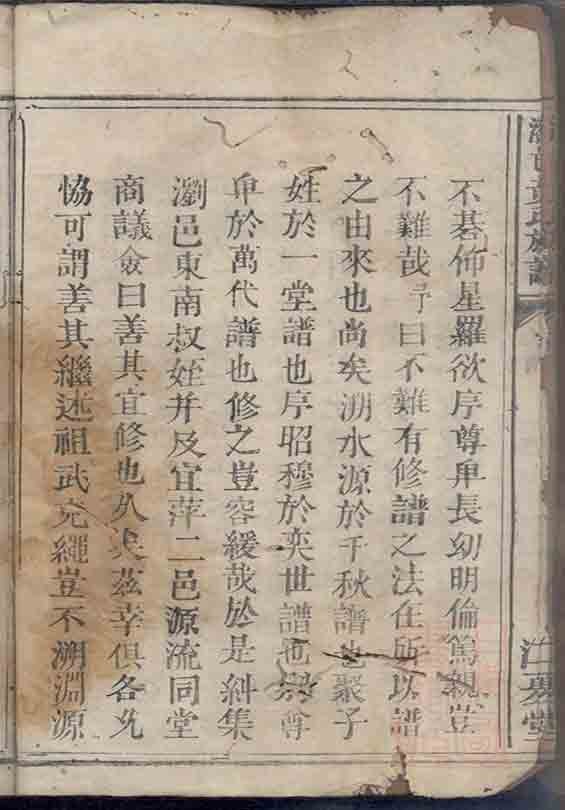 不棊佈星羅欲序尊卑長幼明倫篤親豈
不難哉予曰不難有修譜之法在所以譜
之由來也尚矣溯水源於千秋譜也聚子
姓於一堂譜也序昭穆於奕世譜也別尊
卑於萬代譜也修之豈容緩哉於是糾集
瀏邑東南叔姪并及宜萍二邑源流同堂
商議僉曰善其宜修也久矣茲幸俱各允
恊可謂善其繼述祖武克繩豈不溯淵源
江夏堂